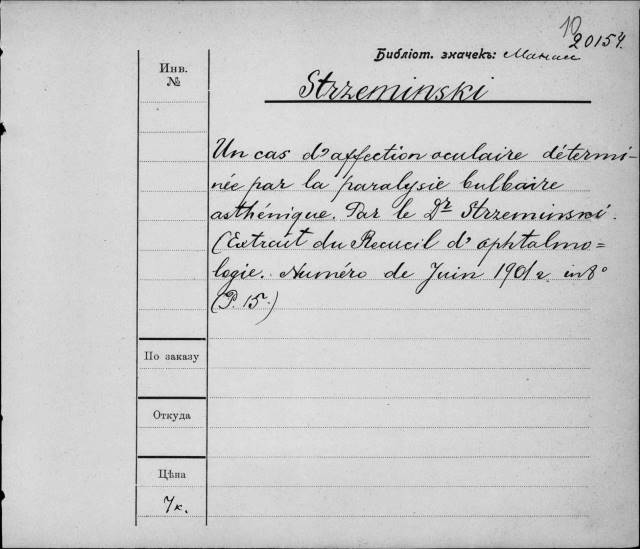 10
20154.
Библіот. значекъ:
Инв.
№
Strzeminski
Un cas d'affection oculaire détermi-
née par la paralysie bulbaire
asthénique. Par le Dr Strzeminski.
(Extrait du Recueil d'ophtalmo=
logie. Numéro de Juin 1901 in 8°
(P. 15.)
По заказу
Откуда
Цѣна
7к.